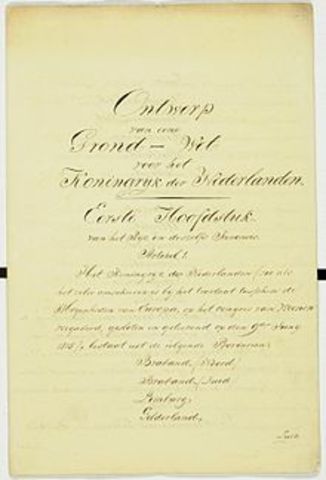 Ontwerp
van eene
Grond-Wet
voor het
Koningryk der Nederlanden.
Eerste Hoofdstuk.
van het Ryk en deszelfs Inwoners.
Artikel 1.
Het Koningryk der Nederlanden, zoo als
het zelve omschreven is by het tractaat tusschen de
Mogenheden van Europa, op het congres van Weenen
vergaderd, gesloten en geteekend op den 9den Juny
1815, bestaat uit de volgende Provincien:
Braband (Noord)
Braband (Zuid)
Limburg,
Gelderland,